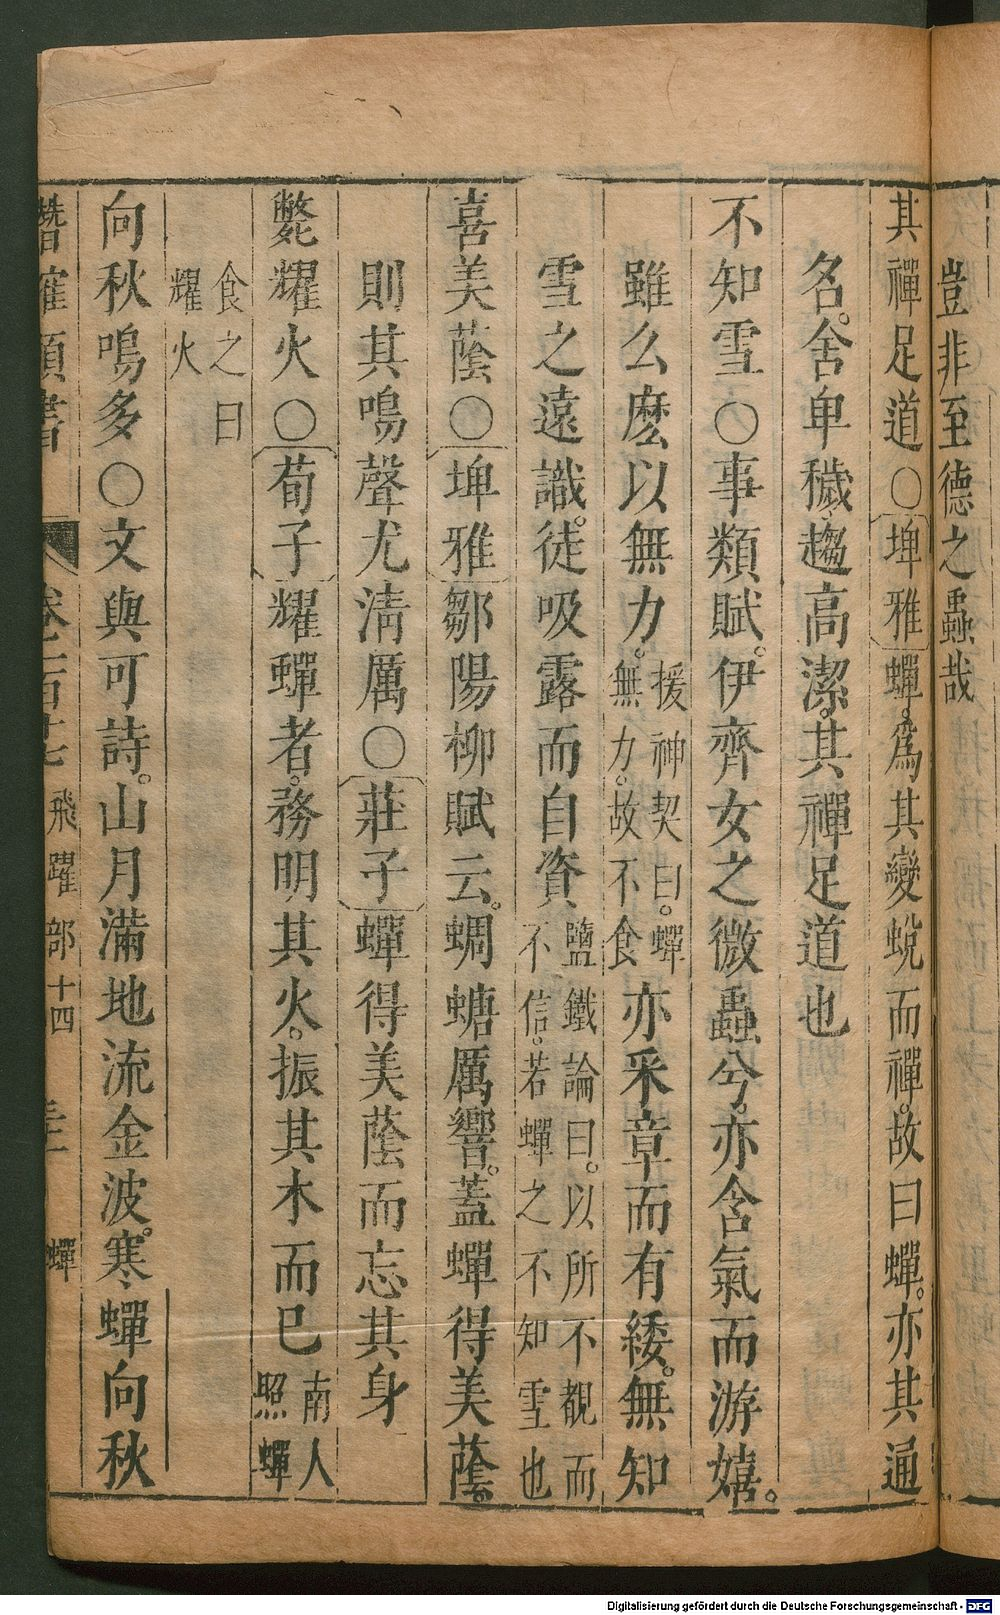 豈非至德之蟲哉
其禪足道〇埤雅蟬。爲其變蛻而禪。故曰蟬。亦其通
名。舍卑穢。趨高潔。其禪足道也
不知雪〇事類賦。伊齊女之微蟲兮。亦含氣而游嬉。
雖么麽以無力。援神契曰。蟬無力。故不食亦采章而有緌。無知
雪之遠識。徒吸露而自資鹽鐵論曰。以所不覩而不信。若蟬之不知雪也
喜美蔭〇埤雅鄒陽柳賦云。蜩螗厲響。蓋蟬得美蔭。
則其鳴聲尤淸厲〇莊子蟬得美蔭而忘其身
斃耀火〇荀子耀蟬者。務明其火。振其木而已南人照蟬
食之曰耀火
向秋鳴多〇文與可詩。山月滿地流金波。寒蟬向秋
潛確類書 卷一百十七 飛躍部十四 蟬
Digitalisierung gefördert durch die Deutsche Forschungsgemeinschaft - DFG